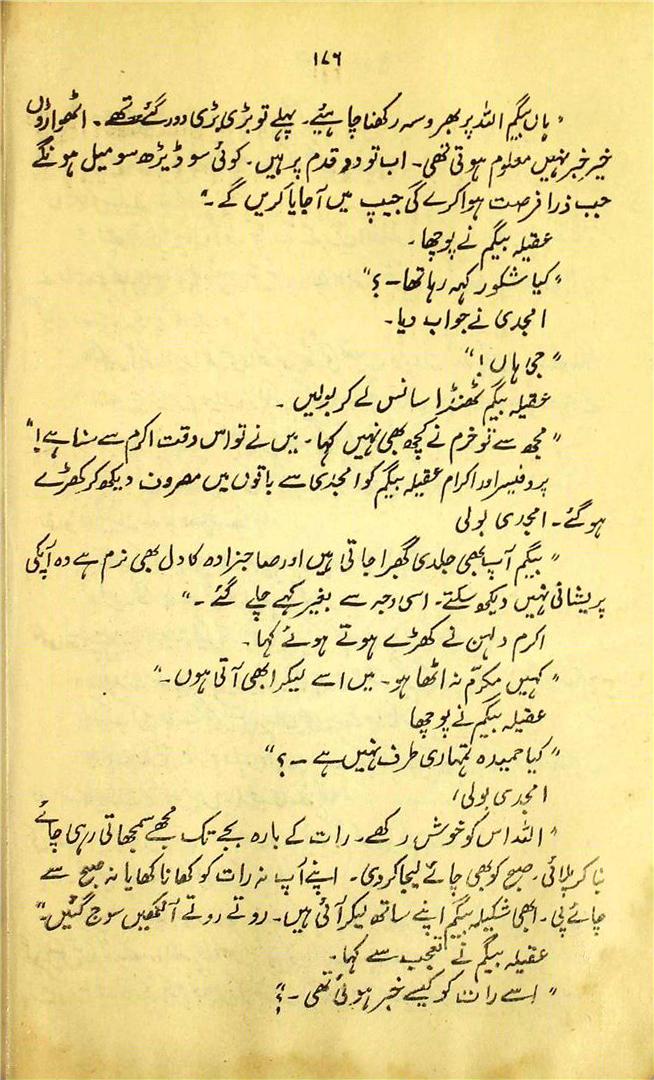 ۱۷۶
"ہاں بیگم اللہ پر بھروسہ رکھنا چاہئیے۔ پہلے تو بڑی بڑی دور گئے تھے۔ اٹھواڑوں
خیر خبر نہیں معلوم ہوتی تھی۔ اب تو دو قدم پر ہیں۔ کوئی سو ڈیڑھ سو میل ہونگے
جب ذرا فرصت ہوا کرے گی جیپ میں آجایا کریں گے۔"
عقیلہ بیگم نے پوچھا۔
"کیا شکور کہہ رہا تھا۔؟"
امجدی نے جواب دیا۔
"جی ہاں!"
عقیلہ بیگم ٹھنڈا سانس لے کر بولیں۔
"مجھ سے تو خرم نے کچھ بھی نہیں کہا۔ میں نے تو اس وقت اکرم سے سنا ہے!"
پروفیسر اور اکرام عقیلہ بیگم کو امجدی سے باتوں میں مصروف دیکھ کر کھڑے
ہو گئے۔ امجدی بولی
"بیگم آپ بھی جلدی گھبرا جاتی ہیں اور صاحبزادہ کا دل بھی نرم ہے وہ آپکی
پریشانی نہیں دیکھ سکتے۔ اسی وجہ سے بغیر کہے چلے گئے۔"
اکرم دلہن نے کھڑے ہوتے ہوئے کہا۔
"کہیں مکرّم نہ اٹھا ہو۔ میں اسے لیکر ابھی آتی ہوں۔"
عقیلہ بیگم نے پوچھا
"کیا حمیدہ تمہاری طرف نہیں ہے۔؟"
امجدی بولی،
"اللہ اس کو خوش رکھے۔ رات کے بارہ بجے تک مجھے سمجھاتی رہی چائے
بنا کر پلائی۔ صبح کو بھی چائے لیجا کر دی۔ اپنے آپ نہ رات کو کھانا کھایا نہ صبح سے
چائے پی۔ ابھی شکیلہ بیگم اپنے ساتھ لیکر آئی ہیں۔ روتے روتے آنکھیں سوج گئیں۔"
عقیلہ بیگم نے تعجب سے کہا۔
"اسے رات کو کیسے خبر ہوئی تھی۔؟"